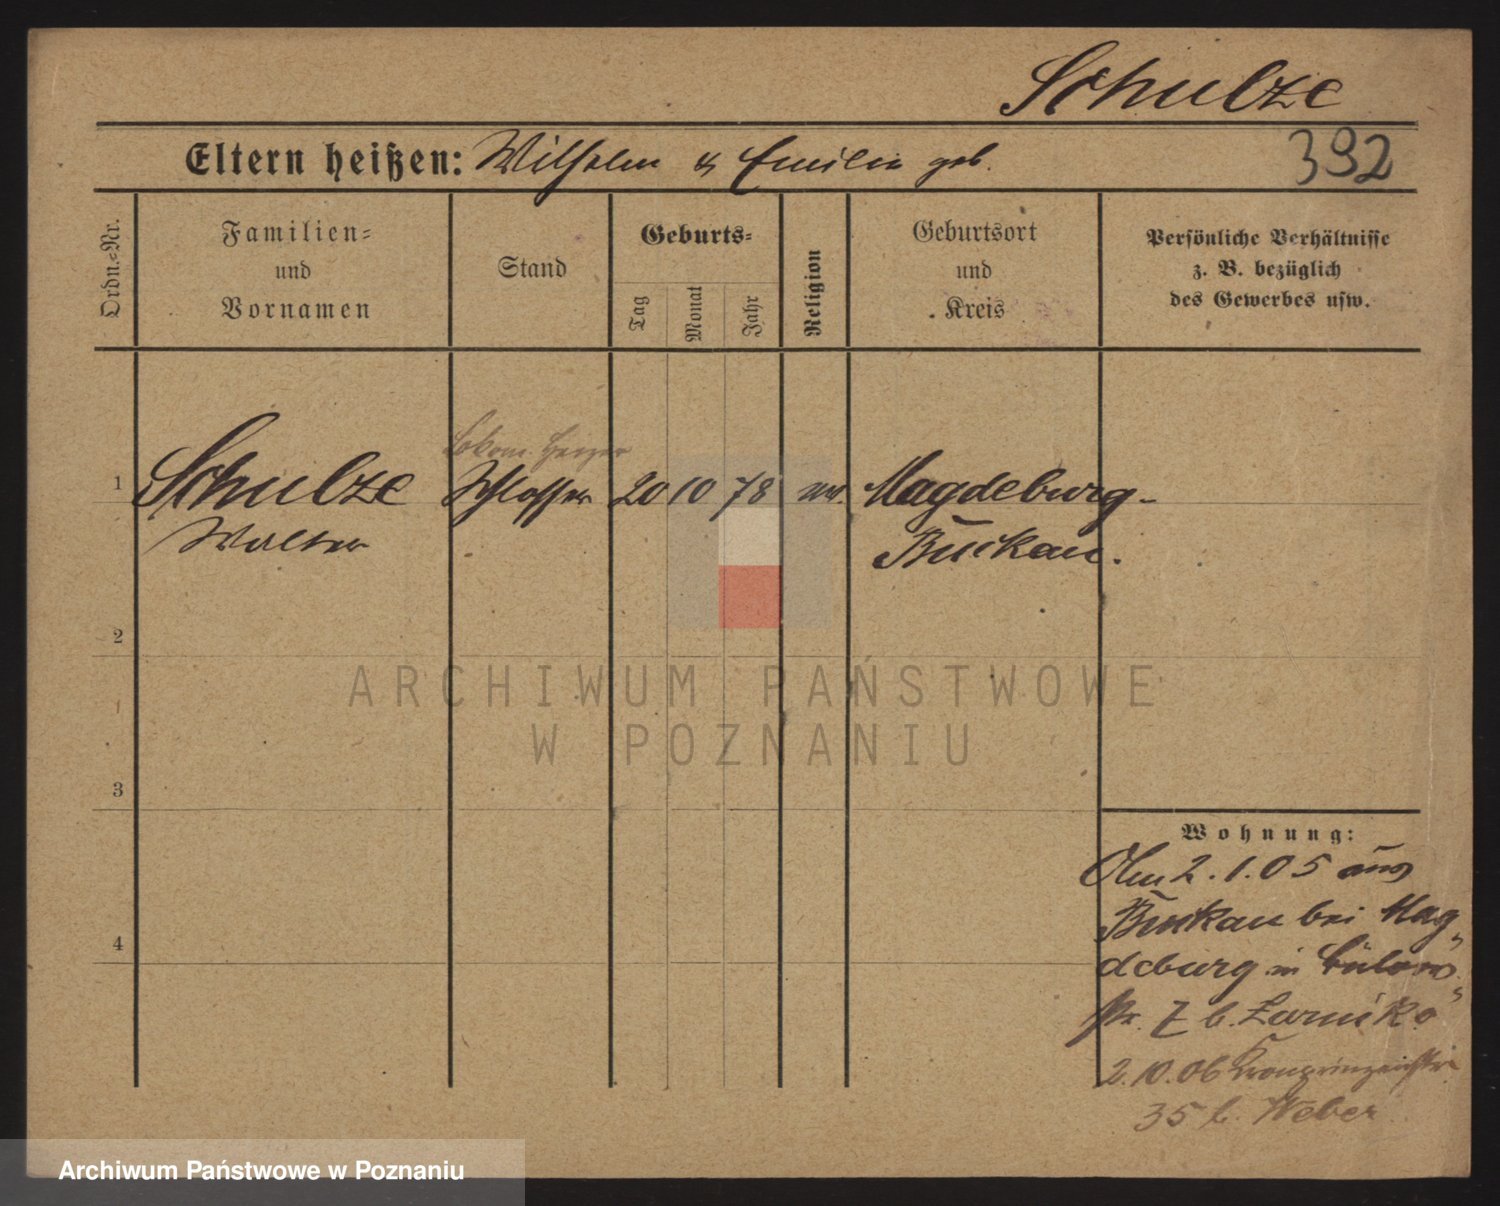 Schulze
Eltern heißen: Wilhelm & Emilie geb.
392
Ordn.=Nr.
Familien=
und
Vornamen
Stand
Geburts=
Tag
Monat
Jahr
Religion
Geburtsort
und
Kreis
Persönliche Verhältnisse
z. B. bezüglich
des Gewerbes usw.
Lokom. Heizer
1 Schulze Schlosser 20 10 78 ev. Magdeburg-
Walter Buckau.
2
3
4
Wohnung:
2.1.05 aus
Buckau bei Mag„
deburg in Bülow„
str. b. Zarniko
2.10.06 Kronprinzenstr.
35 b. Weber
ARCHIWUM PAŃSTWOWE
W POZNANIU
Archiwum Państwowe w Poznaniu